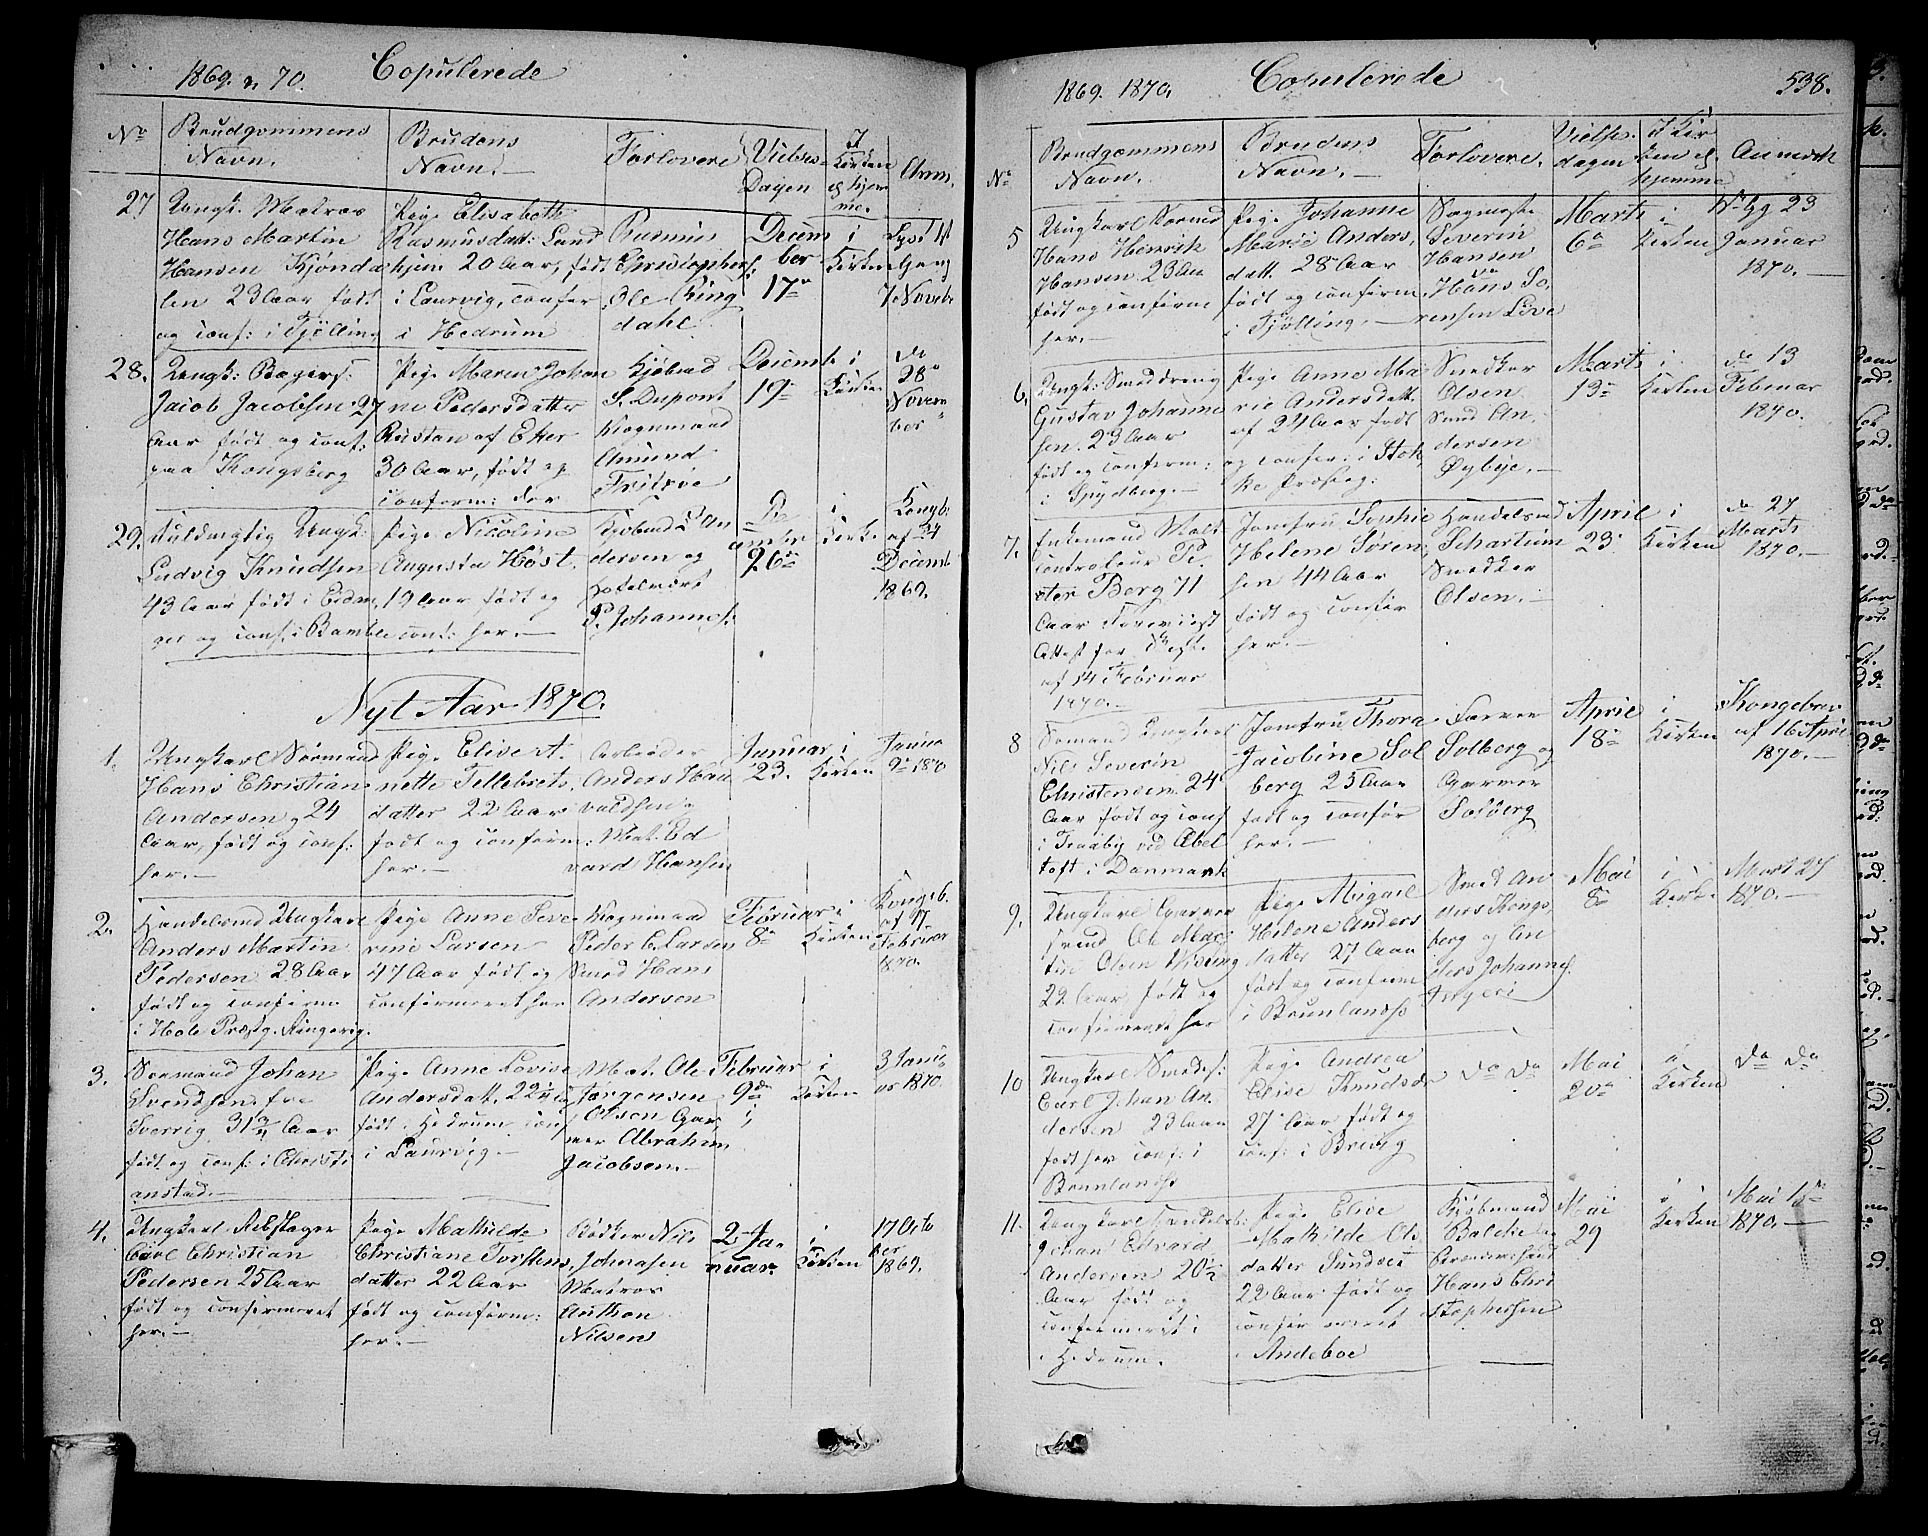 1869. n 70. Copulerede
No
Brudgommens
Navn.
Brudens
Navn.
Forlovere
Vielses=
Dagen
I
Kirken
el Hjem
me.
Anm.
27
Ungk. Matros
Hans Martin
Hansen Kjønda
len 23 Aar født
og conf: i Tjølling
Pige Elisabeth
Rasmusdatt: Land
hjem 20 Aar, født
i Laurvig, confer
i Hedrum
Rasmus
Christophers:
Ole Ring
dahl
Decem
ber
17de
i
Kirken
Lyst 1st
Gang
7 Novebr
28.
Ungk: Bagers:
Jacob Jacobsen 27
Aar født og conf:
paa Kongsberg
Pige Maren Johan
ne Pedersdatter
Rustan af Eker
30 Aar, født og
conform: der
Kjøbmd
S. Dupont
Vognmand
Amund
Fritzøe
Decembr
19de
i
Kirken
do
28de
Novem
ber
29.
Fuldmgtig Ungk:
Ludvig Knudsen
43 Aar født i Eidan
ger og conf. i Bamble
Pige Nicoline
Augusta Høst
19 Aar født og
conf: her.—
Kjøbmd An
dersen og
Hotelvært
P. Johannes:
De
cember
26de
i
Kirke
Kongbr
af 24
Decemb
1869.
Nyt Aar 1870.
1.
Ungkarl Sørmand
Hans Christian
Andersen, 24
Aar, født og conf:
her.—
Pige Elise A.
nette Tellefsets,
datter 22 Aar
født og conform:
her.—
Arbeider
Anders Hau
valdsen
Mat. Ed
vard Hansen
Januar
23.
i
Kirken
Janua
9de 1870
2.
Handelsmd Ungkarl
Anders Martin
Pedersen 28 Aar
født og confirm
i Hole Præstg. Ringerig.
Pige Anne Seve
rine Larsen
47 Aar født og
confirmeret her
Vognmand
Peder C. Larsen
Smed Hans
Andersen
Februar
8de
i
Kirken
Kongeb.
af 17
Februar
1870.
3.
Sørmand Johan
Svendsen fra
Sverrig, 31 3/4 Aar
født og conf: i Christi
anstad.—
Pige Anne Lovise
Andersdatt. 22 1/2 Aar
født i Hedrum conf
i Laurvig.—
Mat. Ole
Jørgensen
Olsen Gar
ver Abraham
Jacobsen.—
Februar
9de
i
Kirken
3 Janu
ar 1870.
4.
Ungkarl Rebslager
Carl Christian
Pedersen 25 Aar
født og confirmeret
her.—
Pige Mathilde
Christiane Torstens,
datter 22 Aar
født og conform:
her.—
Bødker Nils
Johnasen
Matros
Anthon
Nilsen
2 Ja-
nuar.
i
Kirken
17 Octo
ber
1869.
1869. 1870. Copulerede 538.
No
Brudgommens
Navn.
Brudens
Navn.—
Forlovere.
Vielses.
dagen
I Kir
ken el.
hjemme
Anmerk
5
Ungkarl Sørmd
Hans Henrik
Hansen 23 Aar
født og confirm
her.—
Pige Johanne
Marie Anders,
datt. 28 Aar
født og conform
i Tjølling.—
Severin
Hansen
Hans So,
rensen Live
Marts
6te
i
Kirken
23
Januar
1870.—
6.
Ungk: Smeddreng
Gustav Johanne
sen 23 Aar
født og conform:
i Spydberg.—
Pige Anne Ma
rie Andersdatt.
af 24 Aar født
og confer: i Stok,
ke Præstg:
Smedker
Olsen
Smed An
dersen
Øybye.—
Marts
13de
i
Kirken
do 13
Februar
1870.
7.
Enkemand Malt
controleur Pe
ter Berg 71
Aar Foreviist
Attest for Skifte
af 14 Februar
1870.—
Jomfru Sophie
Helene Søren,
sen 44 Aar
født og confir
her.—
Handelsmd
Schartum
Smedker
Olsen.—
April
23
i
Kirken
do 27
Marts
1870.—
8
Sømand Ungkarl
Nils Severin
Christensen 24
Aar født og conf
i Traaby ved Æbel
toft i Danmark
Jomfru Thora
Jacobine Sol
berg 23 Aar
født og confir
her.—
Farver
Solberg og
Garver
Solberg
April
18de
i
Kirken
Kongebrev
af 16 April
1870.—
9.
Ungkarl Garver
svend Ole Mar
tin Olsen Wising
22 Aar, født og
confirmeret her
Pige Abigael
Helene Anders
datter 27 Aar
født og confirm
i Brunlandss
Smed An
ders Kongs,
berg og An
ders Johannes.
Myeri
Mai
8de
i
Kirke
Mart 27
1870.—
10
Ungkarl Smeds:
Carl Johan An.
dersen 23 Aar
født her conf: i
Brunlandss
Pige Andrea
Elise Knudsdr
27 Aar født og
conf: i Brevig
do do
Mai
20de
i
Kirken
do do
11.
Ungkarl Handelsb:
Johan Edvard
Andersen 20 1/2
Aar født og
confirmeret i
i Hedrum.
Pige Elise
Mathilde Ols
datter Sundset
22 Aar født og
confirmeret
i Andeboe
Kjøbmand
Balche og
Hans Chri
stophersen
Mai
29
i
Kirken
Mai 1ste
1870.—